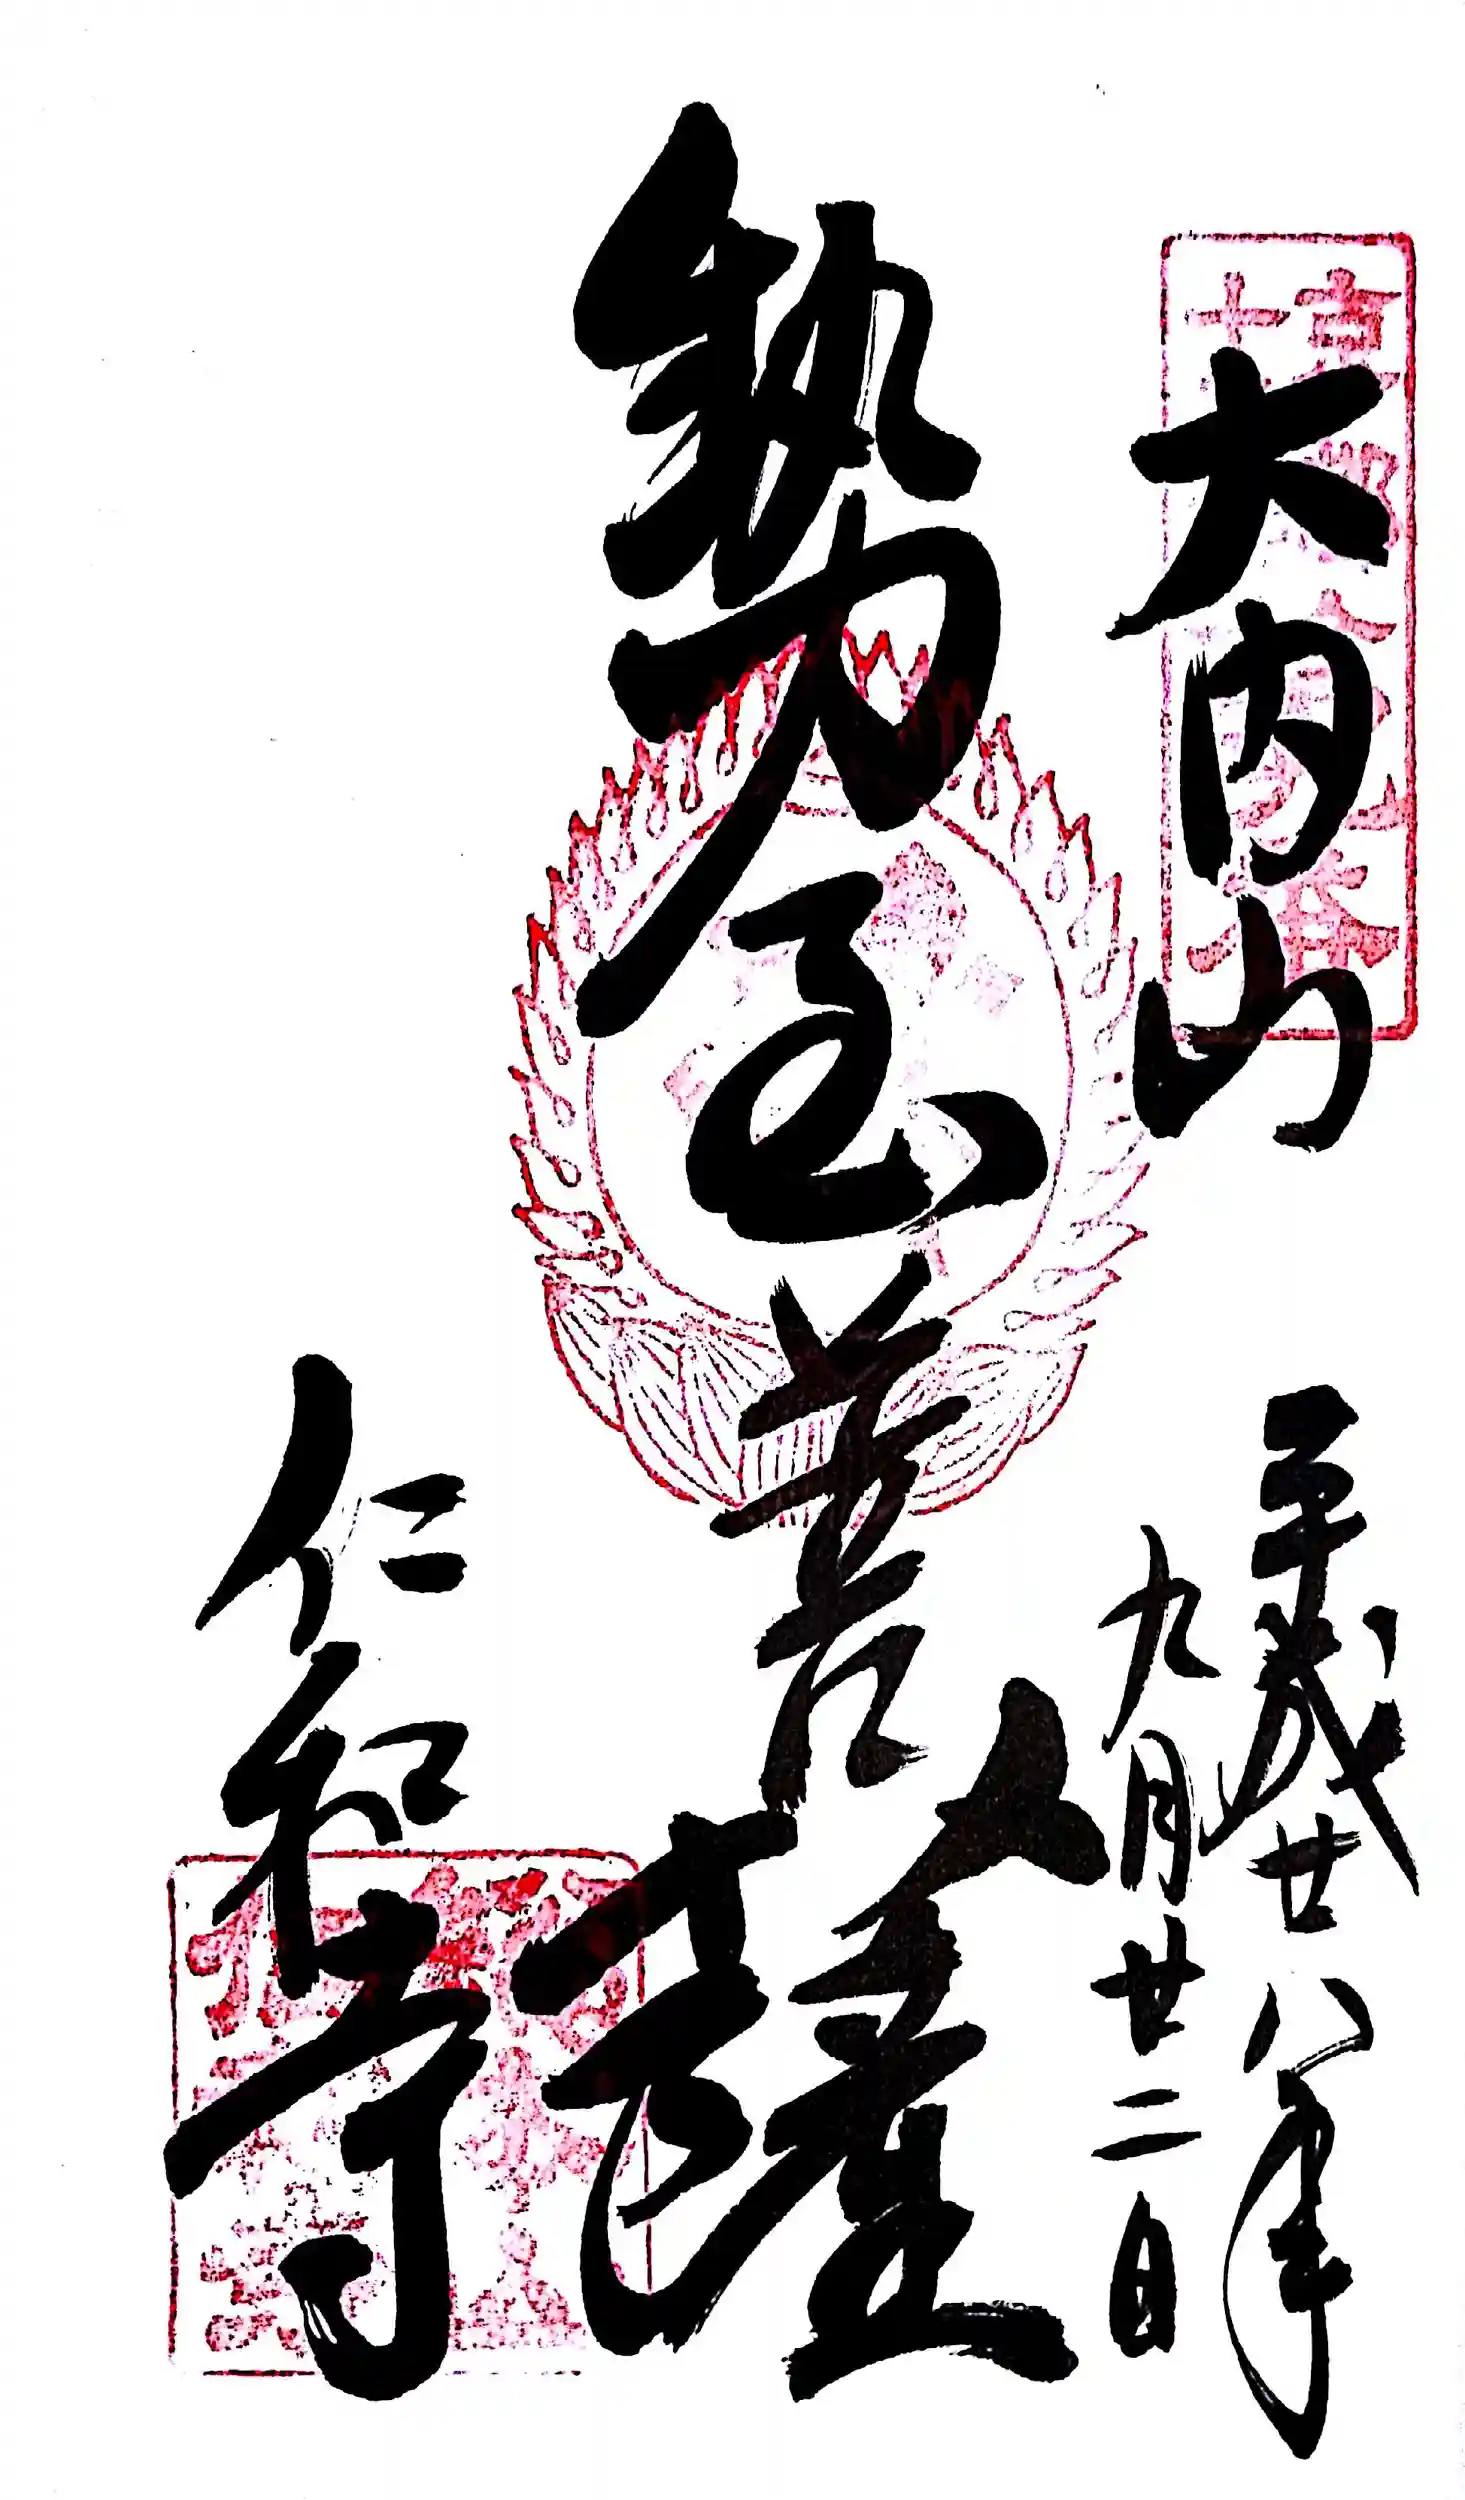 大内山
平成廿八年
九月廿二日
勢至菩薩
仁和寺